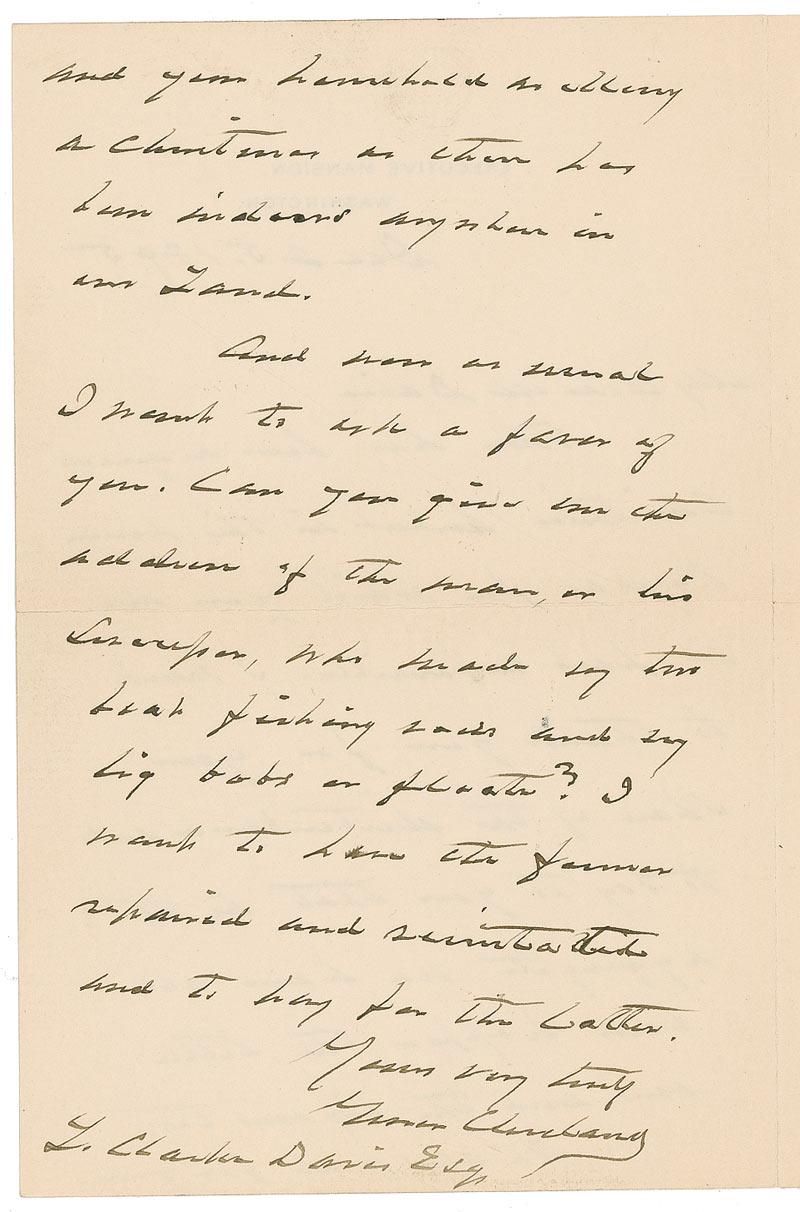 and your household as Merry
a Christmas as there has
been indoors anywhere in
our Land.
And now as usual
I want to ask a favor of
you. Can you give me the
address of the man, or his
successor, who made my two
boat fishing rods and my
big bobs or floats? I
want to have the former
repaired and reinstated
and to pay for the latter.
Yours very truly
Grover Cleveland
L. Clarke Davis Esq
EXECUTIVE MANSION
WASHINGTON